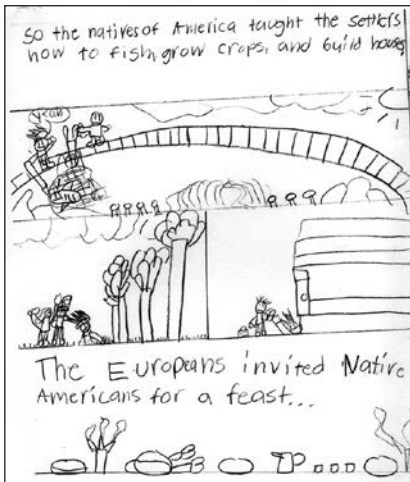 So the natives of America taught the settlers
how to fish, grow crops, and build houses
The Europeans invited Native
Americans for a feast...